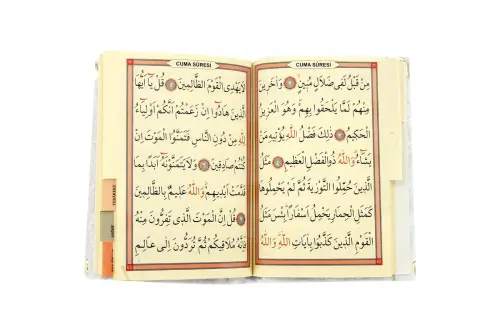 CUMA SÛRESİ
مِنْ قَبْلُ لَفِى ضَلَالٍ مُبِينٍ وَاٰخَرِينَ
مِنْهُمْ لَمَّا يَلْحَقُوا بِهِمْ وَهُوَ الْعَزِيزُ
الْحَكِيمُ ذٰلِكَ فَضْلُ اللّٰهِ يُؤْتِيهِ مَنْ
يَشَٓاءُ وَاللّٰهُ ذُوالْفَضْلِ الْعَظِيمِ مَثَلُ
الَّذِينَ حُمِّلُوا التَّوْرٰيةَ ثُمَّ لَمْ يَحْمِلُوهَا
كَمَثَلِ الْحِمَارِ يَحْمِلُ اَسْفَارًا بِئْسَ مَثَلُ
الْقَوْمِ الَّذِينَ كَذَّبُوا بِاٰيَاتِ اللّٰهِ وَاللّٰهُ
CUMA SÛRESİ
لَا يَهْدِى الْقَوْمَ الظَّالِمِينَ قُلْ يَٓا اَيُّهَا
الَّذِينَ هَادُٓوا اِنْ زَعَمْتُمْ اَنَّكُمْ اَوْلِيَٓاءُ
لِلّٰهِ مِنْ دُونِ النَّاسِ فَتَمَنَّوُا الْمَوْتَ اِنْ
كُنْتُمْ صَادِقِينَ وَلَا يَتَمَنَّوْنَهُٓ اَبَدًا بِمَا
قَدَّمَتْ اَيْدِيهِمْ وَاللّٰهُ عَلِيمٌ بِالظَّالِمِينَ
قُلْ اِنَّ الْمَوْتَ الَّذِى تَفِرُّونَ مِنْهُ
فَاِنَّهُ مُلَاقِيكُمْ ثُمَّ تُرَدُّونَ اِلٰى عَالِمِ